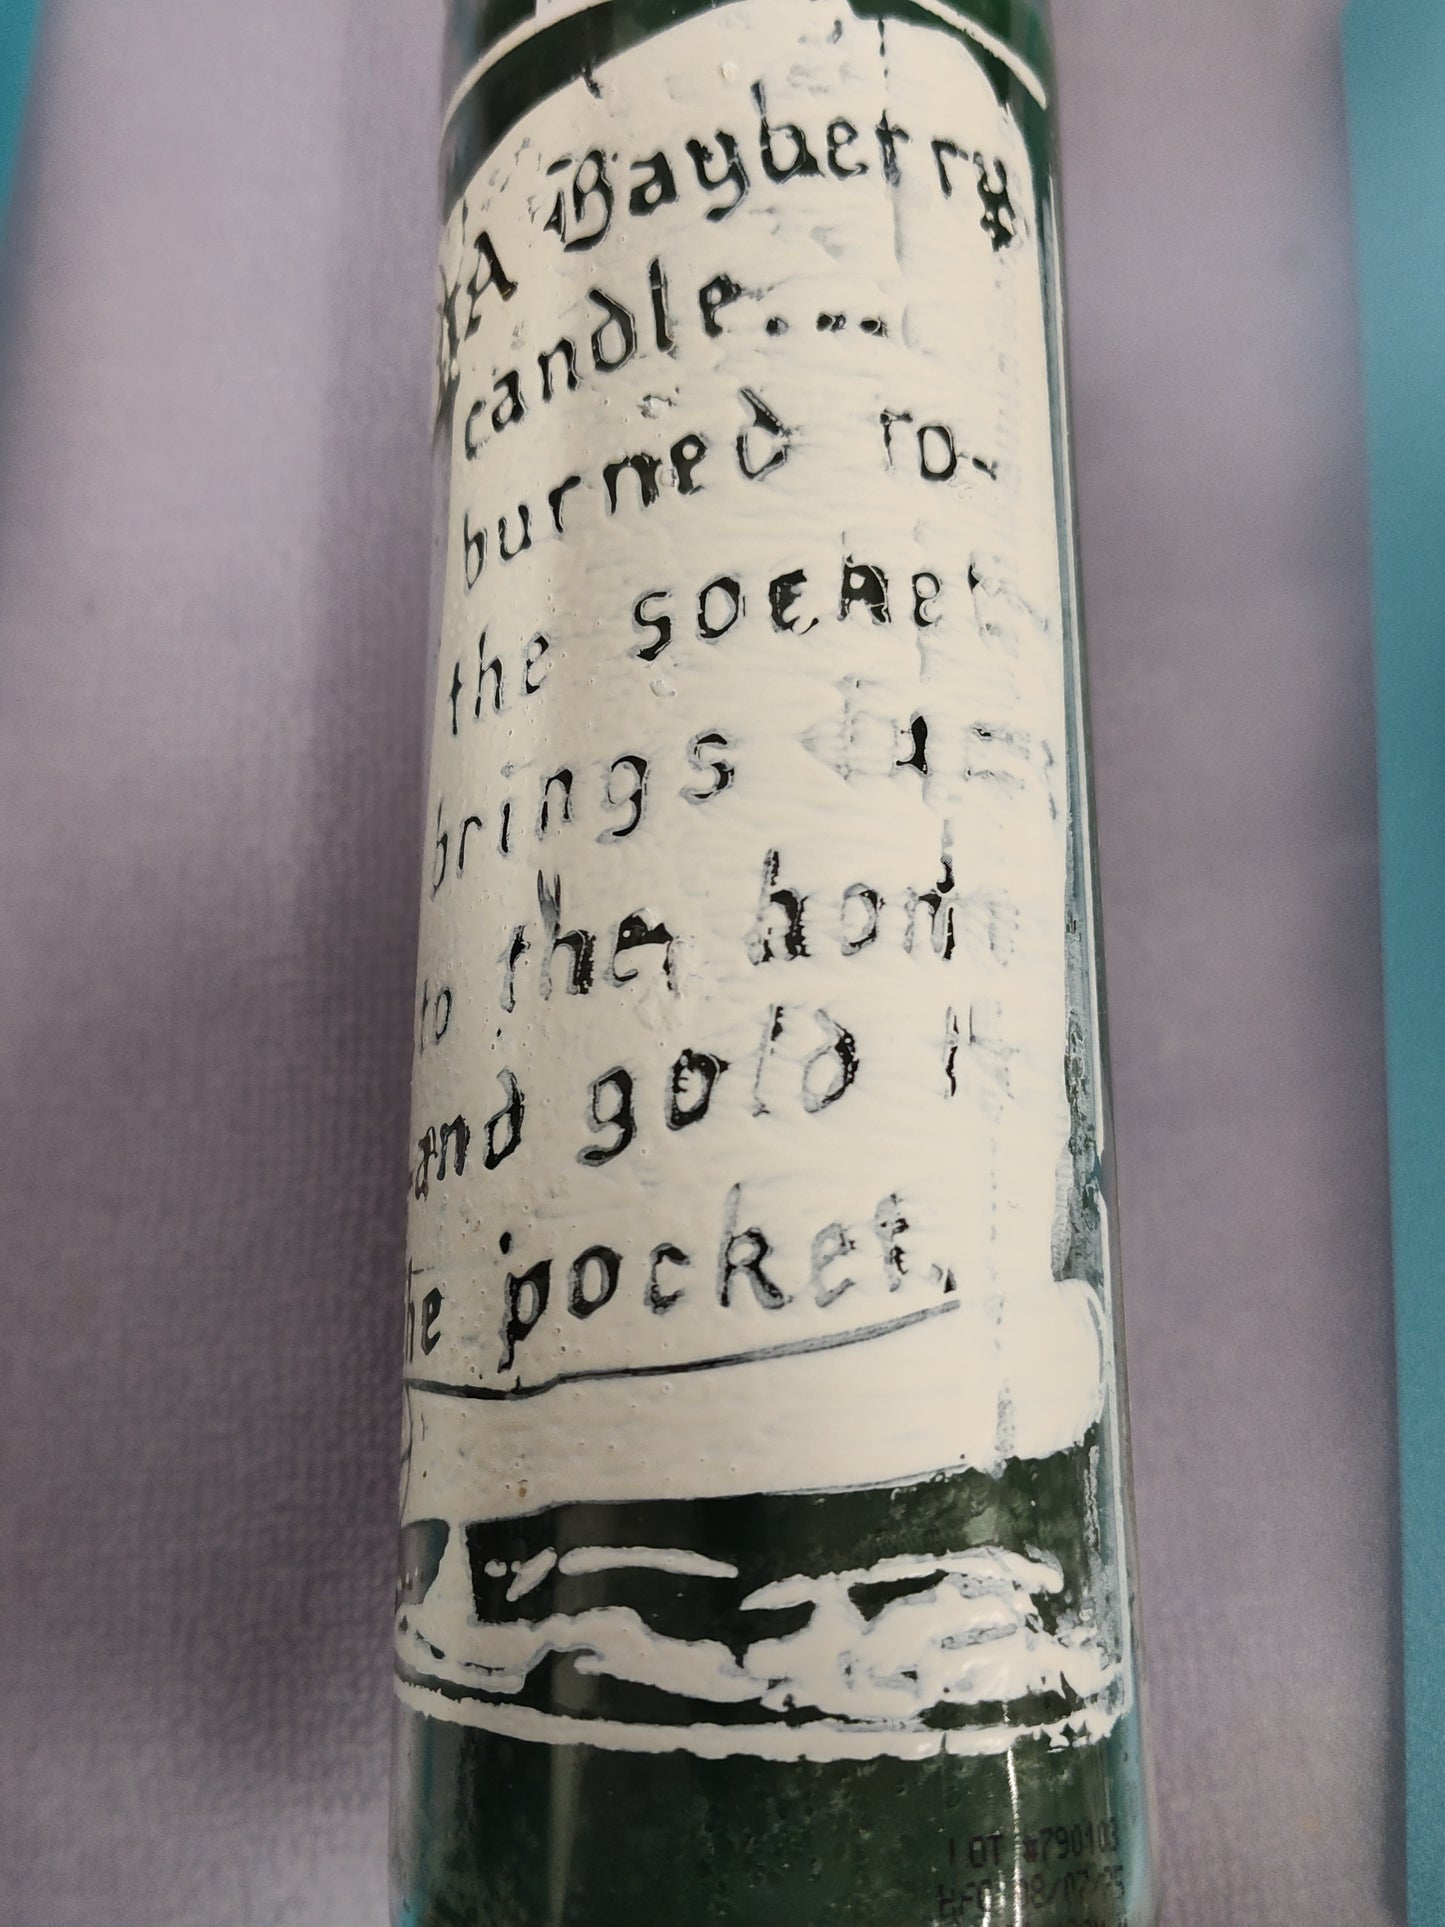 A Bayberry
candle....
burned to
the socket
brings
to the hom
and gold
the pocket.
LOT #790103
08/07/25